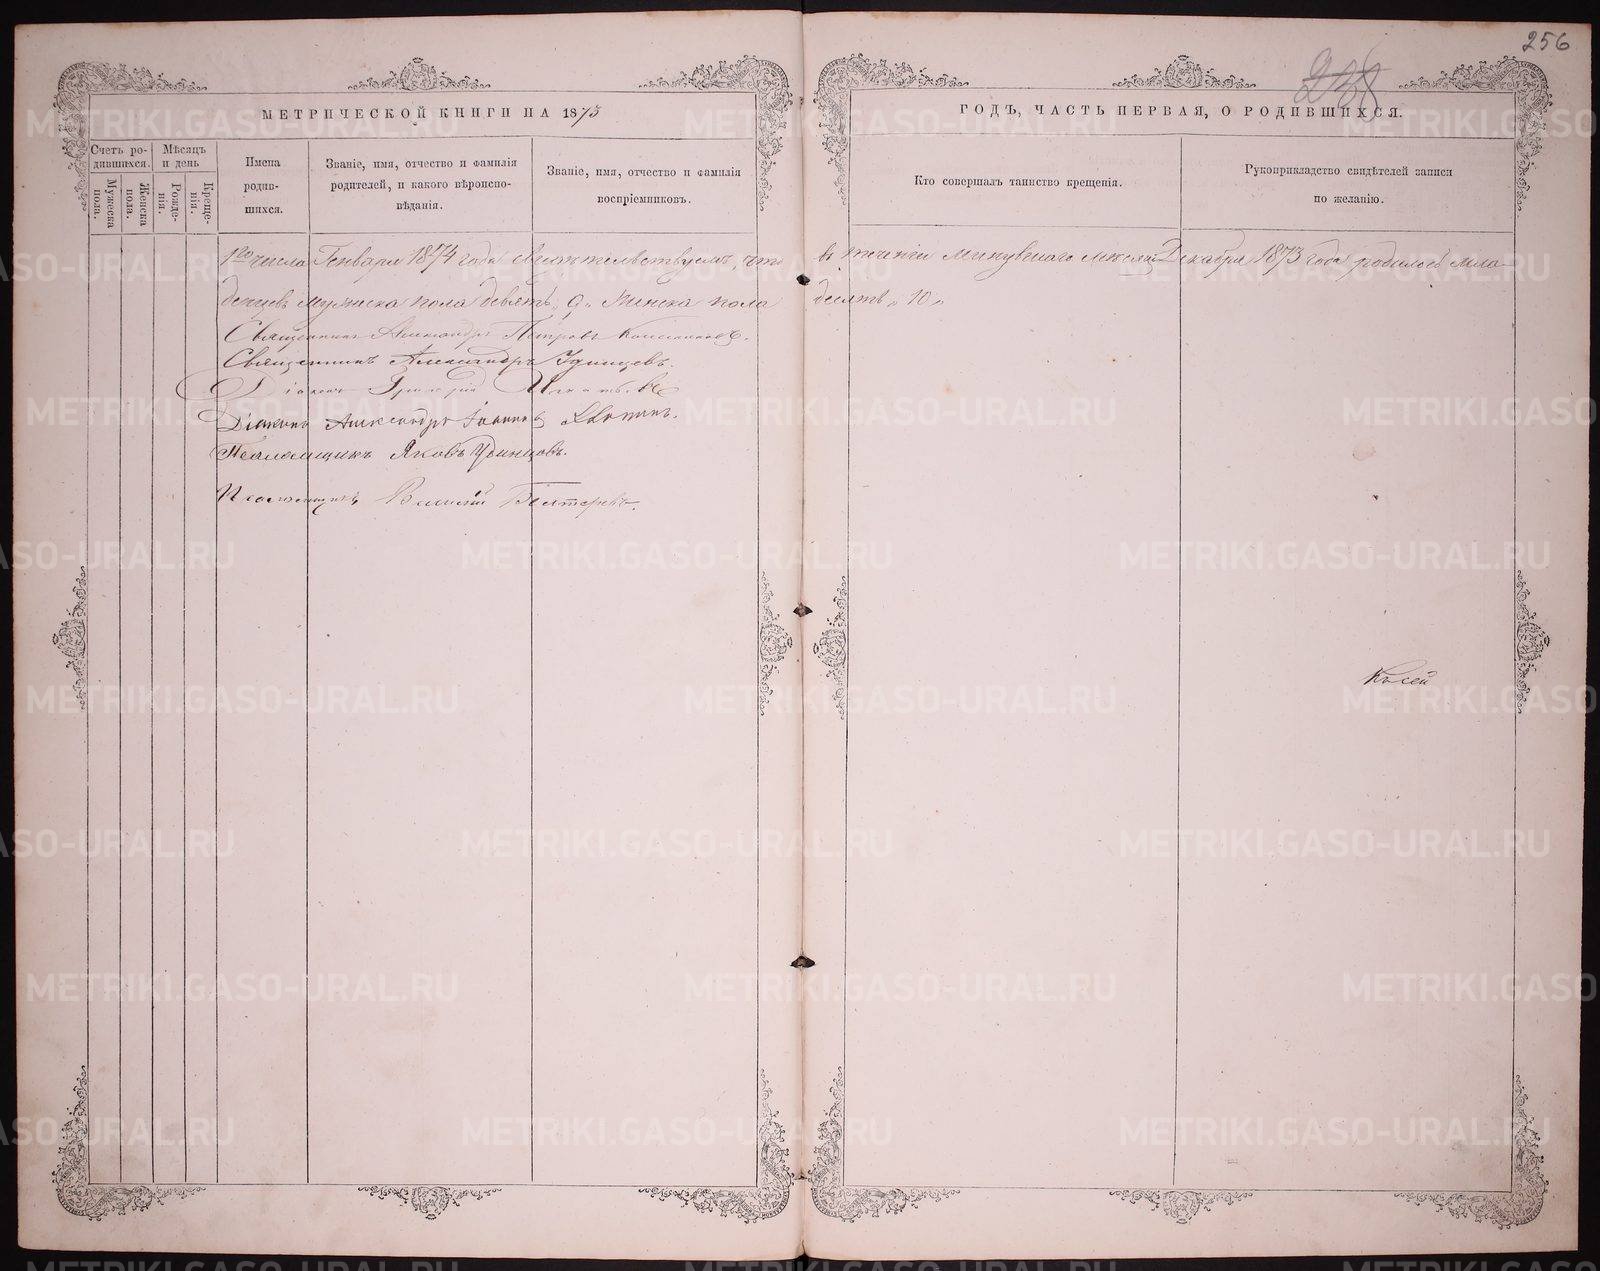 256
МЕТРИЧЕСКОЙ КНИГИ НА 1873
ГОДЪ, ЧАСТЬ ПЕРВАЯ, О РОДИВШИХСЯ.
Счетъ ро-
дившихся.
Мужеска
пола.
Женска
пола.
Мѣсяцъ
и день
Рожде-
нія.
Креще-
нія.
Имена
родив-
шихся.
Званіе, имя, отчество и фамилія
родителей, и какого вѣроиспо-
вѣданія.
Званіе, имя, отчество и фамилія
воспріемниковъ.
Кто совершалъ таинство крещенія.
Рукоприкладство свидѣтелей записи
по желанію.
1го числа Генваря 1874 года свидѣтельствуемъ, что въ теченіи минувшаго мѣсяца Декабря 1873 года родилось мла-
денцевъ мужеска пола девять „9„ женска пола десять „10„
Священникъ Александръ Петровъ
Священникъ Александръ Удинцевъ.
Діаконъ Григорій
Діаконъ Александръ Іоанновъ
Псаломщикъ Яковъ Удинцовъ.
Псаломщикъ
METRIKI.GASO-URAL.RU